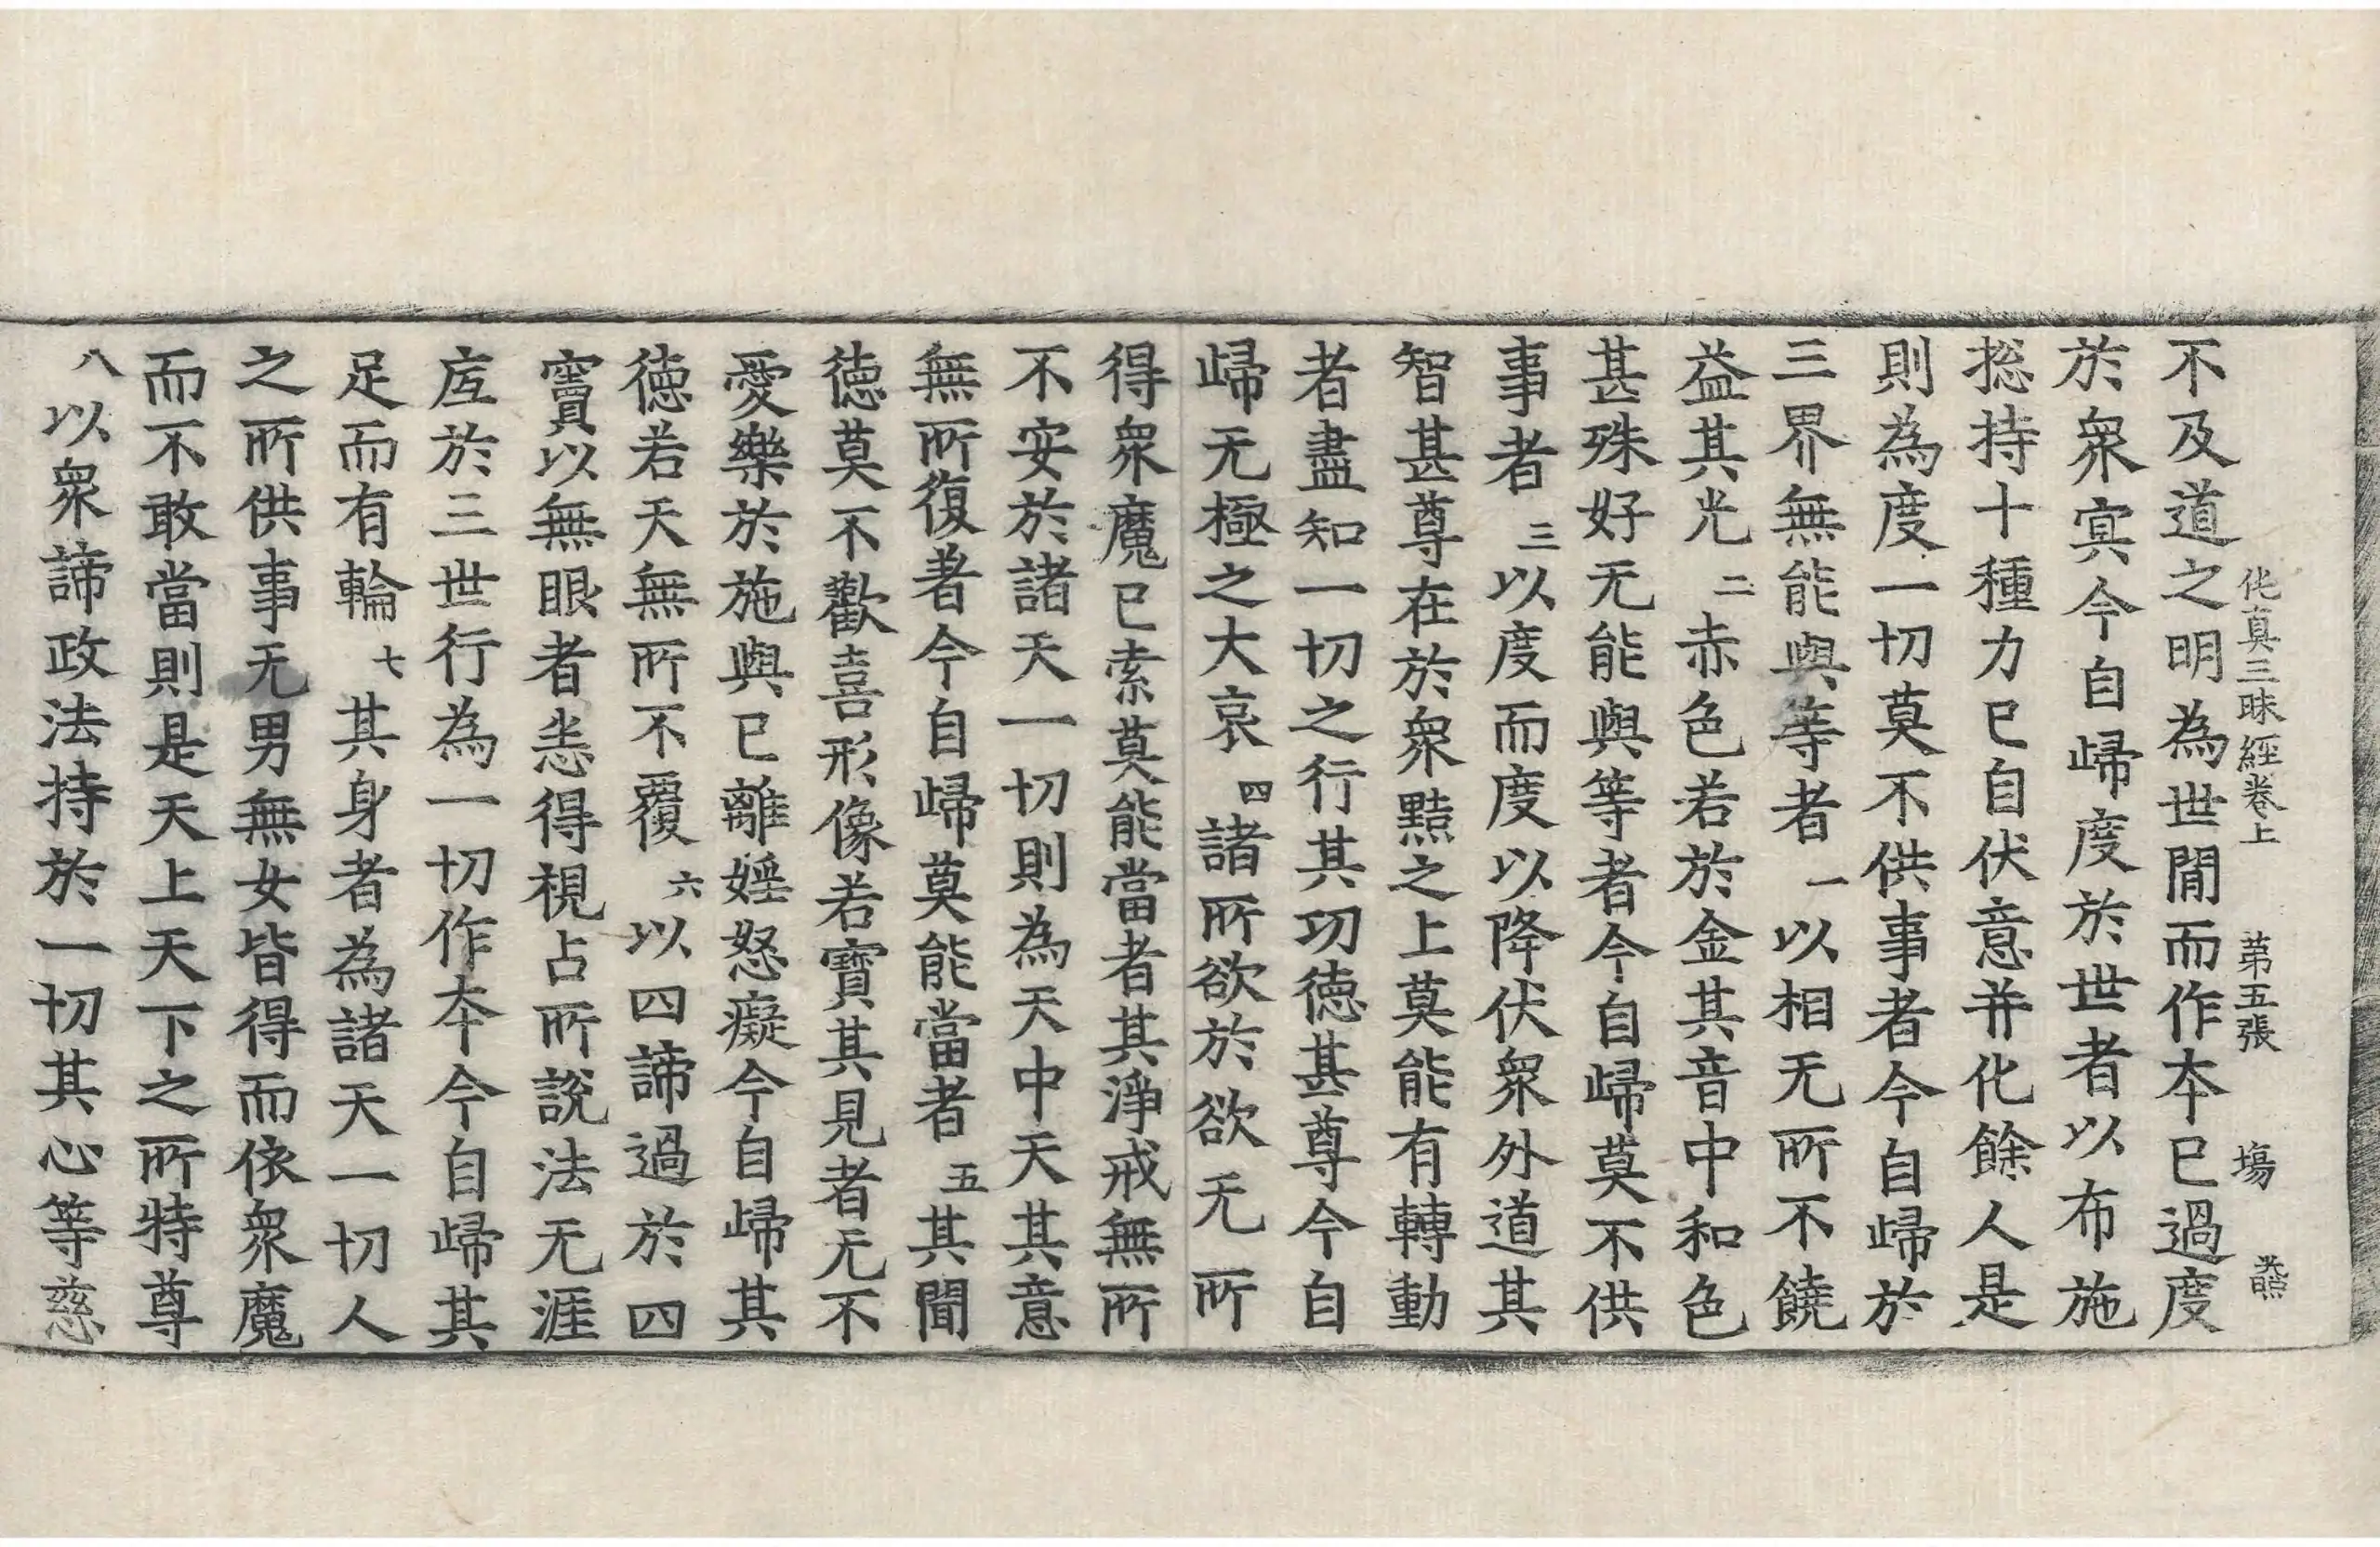 不及道之明為世閒而作夲已過度
伅真三昧經卷上　第五張　塲
於衆㝠今自歸度於世者以布施
揔持十種力已自伏意并化餘人是
則為度一切莫不供事者今自歸於
三界無能與等者一以相无所不饒
益其光二赤色若於金其音中和色
甚殊好无能與等者今自歸莫不供
事者三以度而度以降伏衆外道其
智甚尊在於衆黠之上莫能有轉動
者盡知一切之行其功德甚尊今自
歸无極之大哀四諸所欲於欲无所
得衆魔已索莫能當者其淨戒無所
不安於諸天一切則為天中天其意
無所復著今自歸莫能當者五其閒
德莫不歡喜形像若寶其見者无不
愛樂於施與已離婬怒癡今自歸其
德若天無所不覆六以四諦過於四
竇以無眼者恙得視占所說法无涯
底於三世行為一切作夲今自歸其
足而有輪七其身者為諸天一切人
之所供事无男無女皆得而依衆魔
而不敢當則是天上天下之所特尊
八以衆諦政法持於一切其心等慈